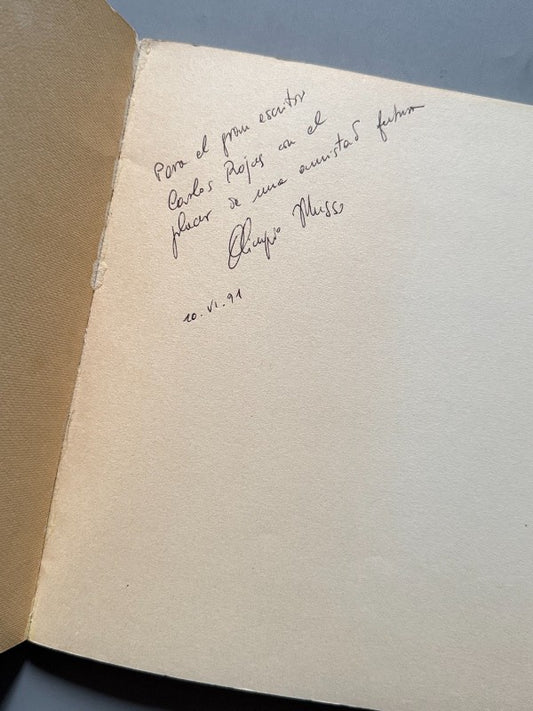 Para el gran escritor
Carlos Rojas con el
placer de una amistad futura
Olimpio Musso
10.VI.91